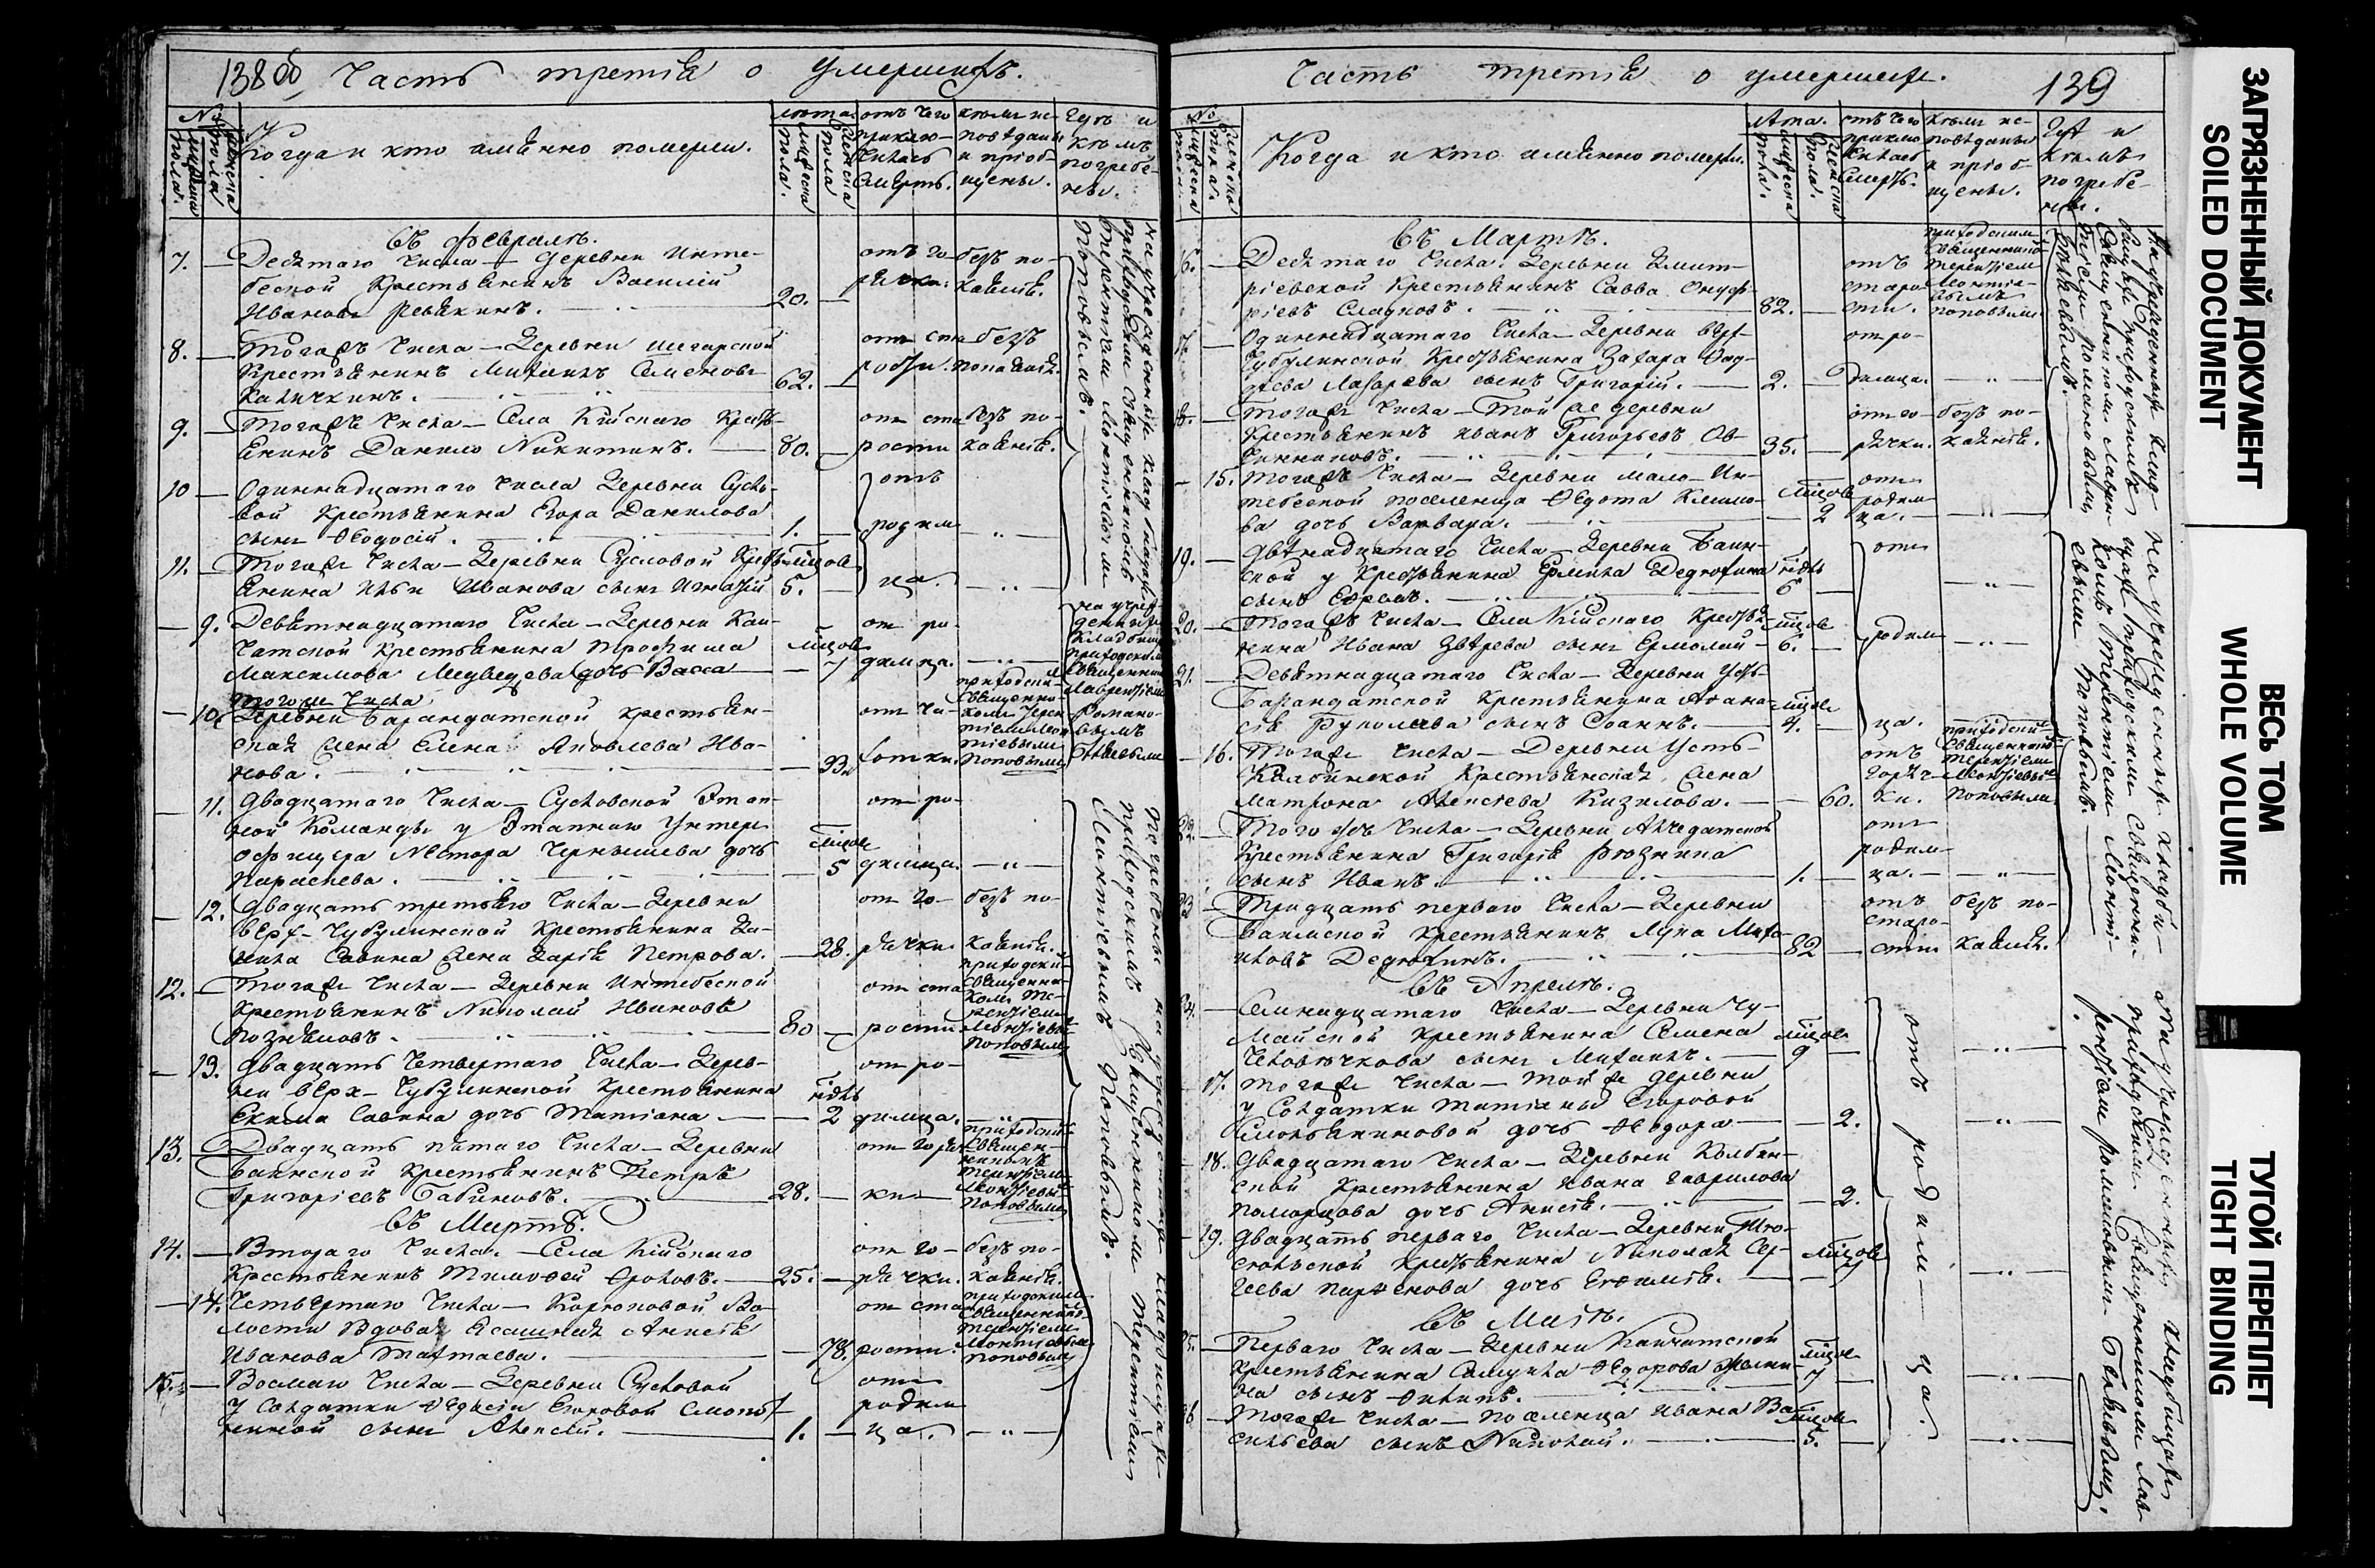 138 об Часть третія о умершихъ.
№
мужеска пола.
женска пола
Когда и кто именно померли.
лѣта
мужеска пола.
женска пола
отъ чего приклю-
чилась
смерть.
кѣмъ ис-
повѣданы
и пріоб-
щены.
Гдѣ и
кѣмъ
погребе-
ны.
въ февралѣ.
7. — Десятаго Числа — Деревни Инте-
беской Крестьянинъ Василій
Ивановъ Ревякинъ. 20. —
отъ го-
рячки.
безъ по-
каянія.
8. — Тогожъ Числа — Деревни
Крестьянинъ Михаилъ Семеновъ
Каличкинъ. 62. —
безъ
покаянія.
9. — Тогожъ Числа — Села Кійскаго Крестъ-
янинъ Данило Никитинъ. — 80. —
от ста-
рости
безъ по-
каянія.
10 — Одиннадцатаго Числа Деревни Сусло-
вой Крестьянина Егора Данилова
сынъ Ѳеодосій. 1. —
отъ
родим
ца.
11. — Тогожъ Числа — Деревни Сусловой Кресть-
янина Ильи Иванова сынъ 5. мѣсцов
— 9. Девятнадцатаго Числа — Деревни Кай-
чатской Крестьянина Трофима
Максимова Медведева дочь Васса — мѣсцов 7
от ро-
димца.
Тогоже Числа
— 10. Деревни Барандатской крестьян-
ская жена Елена Яковлева Ива-
нова. — 33.
от ча-
хотки.
приходским
Священни-
комъ Терен
тіемъ Леон
тіевымъ
Поповымъ
на учреж
денном
кладбищ
приходским
Священник
Лаврентіем
Романо-
вымъ
— 11. Двадцатаго Числа — Сусловской Этап-
ной Команды у Этапнаго Унтеръ
офицера Нестора Чернышева дочь
Параскева. — мѣсцов 5
от ро-
димца.
— 12. Двадцать третьяго Числа — Деревни
Верх-Чубулинской Крестьянина
Савина жена Дарія Петрова. — 28.
от го-
рячки
безъ по-
каянія.
12. — Тогоже Числа — Деревни Интебеской
Крестьянинъ Николай Ивановъ
Позняковъ. 80 —
от ста-
рости
приходским
Священни-
комъ Те-
рентіем
Леонтіевым
Поповымъ
— 13. Двадцать Четвертаго Числа — Дерев-
ни Верх-Чубулинской Крестьянина
Екима Савина дочь Татіана — нѣдѣль 2
от ро-
димца.
13. — Двадцать пятаго Числа — Деревни
Баимской Крестьянинъ Петръ
Григоріевъ Бабиновъ. 28. —
от горяч
ки
приходским
Священ-
никомъ
Терентіем
Леонтіевым
Поповымъ
въ Мартѣ.
14. — Втораго Числа. — Села Кійскаго
Крестьянинъ Тимофей Ѳроловъ. — 25. —
от го-
рячки.
безъ по-
каянія.
— 14. Четвертаго Числа — Карюповой Во-
лости Вдова Ясашная Анисія
Иванова Тахтаева. — 78.
от ста
рости.
приходским
Священником
Терентіем
Леонтіевым
Поповымъ
15. — Восмаго Числа — Деревни Сусловой
У Солдатки Егоровой
сынъ Алексій. 1. —
отъ
родим
ца.
на учрежденномъ кладбищѣ
приходскимъ Священникомъ
Терентіемъ Леонтіевымъ
Поповымъ.
Погребены на учрежденномъ кладбищѣ
приходскимъ Священникомъ Терентіемъ
Леонтіевымъ Поповымъ.
Часть третія о умершихъ. 139
№
мужеска пола
женска пола.
Когда и кто именно померли.
Лѣта.
мужеска пола.
женска пола.
отъ чего
приклю
чилась
смерть.
кѣмъ ис-
повѣданы
и пріоб-
щены.
Гдѣ и
кѣмъ
погребе-
ны.
въ Мартѣ.
16. — Десятаго Числа. Деревни Дмит-
ріевской Крестьянинъ Савва Онуф-
ріевъ Сладковъ. 82. —
отъ
старо
сти.
приходским
Священником
Терентіем
Леонтіе-
вымъ
Поповымъ
17. — Одиннадцатаго Числа — Деревни Верх-
Чубулинской Крестьянина Захара Ѳад-
дѣева Лазарева сынъ Григорій. — 2. —
от ро-
димца.
18. — Тогоже Числа — Той же деревни
Крестьянинъ Иванъ Григорьевъ Ов-
чинниковъ. 35. —
от го-
рячки.
безъ по-
каянія.
— 15. Тогожъ Числа — Деревни Мало-Ин-
тебеской поселенца Ѳедота Климо-
ва дочь Варвара. — мѣсцов 2
отъ
родим
ца.
19. — Двѣнадцатаго Числа — Деревни Баим-
ской у Крестьянина Ермила Дедюхина
сынъ нѣдѣль 6 —
отъ
родим
ца.
20. — Тогожъ Числа — Села Кійскаго Кресть-
янина Ивана Звѣрева сынъ Ермолай — мѣсцов 6. —
21. — Девятнадцатаго Числа — Деревни Усть-
Барандатской Крестьянина Аѳана-
сія сынъ Іоаннъ. — мѣсцов 4. —
— 16. Тогоже Числа — Деревни Усть-
Колбинской Крестьянская жена
Матрона Алексіева Кизилова. — 60.
отъ
горяч-
ки.
приходским
Священником
Терентіем
Леонтіевым
Поповымъ
22. — Того жъ Числа — Деревни Алчедатской
Крестьянина Григорія
сынъ Иванъ. 1. —
отъ
родим-
ца.
23. — Тридцать перваго Числа — Деревни
Баимской Крестьянинъ Лука Миха-
иловъ Дедюхинъ. 82 —
отъ
старо-
сти
безъ по-
каянія.
въ Апрелѣ.
24. — Семнадцатаго Числа — Деревни Чу-
майской Крестьянина Семена
Человѣчкова сынъ Михаилъ. — мѣсцов 9 —
— 17. Тогоже Числа — Той же деревни
у Солдатки Татіаны Егоровой
дочь Ѳедора — 2.
— 18. Двадцатаго Числа — Деревни Колбин-
ской Крестьянина Ивана Гаврилова
Поморцова дочь Анисія. — 2.
— 19. Двадцать перваго Числа — Деревни Тю-
Крестьянина Николая Сер-
геева Парѳенова дочь — мѣсцов 7
въ Маіѣ.
25. — Перваго Числа — Деревни Кайчатской
Крестьянина Самуила Ѳедорова
на сынъ Филипъ. мѣсцов 7 —
26. — Тогоже Числа — поселенца Ивана Ва-
сильева сынъ Николай. мѣсцов 5. —
отъ родим—ца.
На учрежденномъ клад-
бищѣ приходскимъ
Священникомъ Лаврен-
тіемъ Романовымъ
На учрежденномъ кладби-
щѣ приходскимъ Священни-
комъ Терентіемъ Леонті-
евымъ Поповымъ.
На учрежденномъ кладбищѣ
приходскимъ Священникомъ Лав-
рентіемъ Романовымъ
ЗАГРЯЗНЕННЫЙ ДОКУМЕНТ
SOILED DOCUMENT
ВЕСЬ ТОМ
WHOLE VOLUME
ТУГОЙ ПЕРЕПЛЕТ
TIGHT BINDING